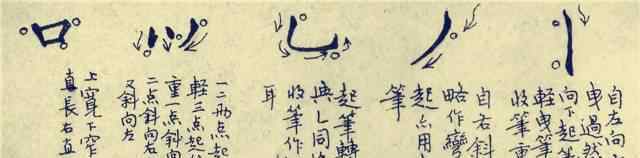 自左向
曳過然
向下起筆
輕曳筆
收筆重
自右斜
略作彎
起点用
筆
起筆轉
與乚同
收筆作
耳
一二两点起
輕三点起
重一点斜
二点斜向右
又斜向左
上寬下窄
真長右直